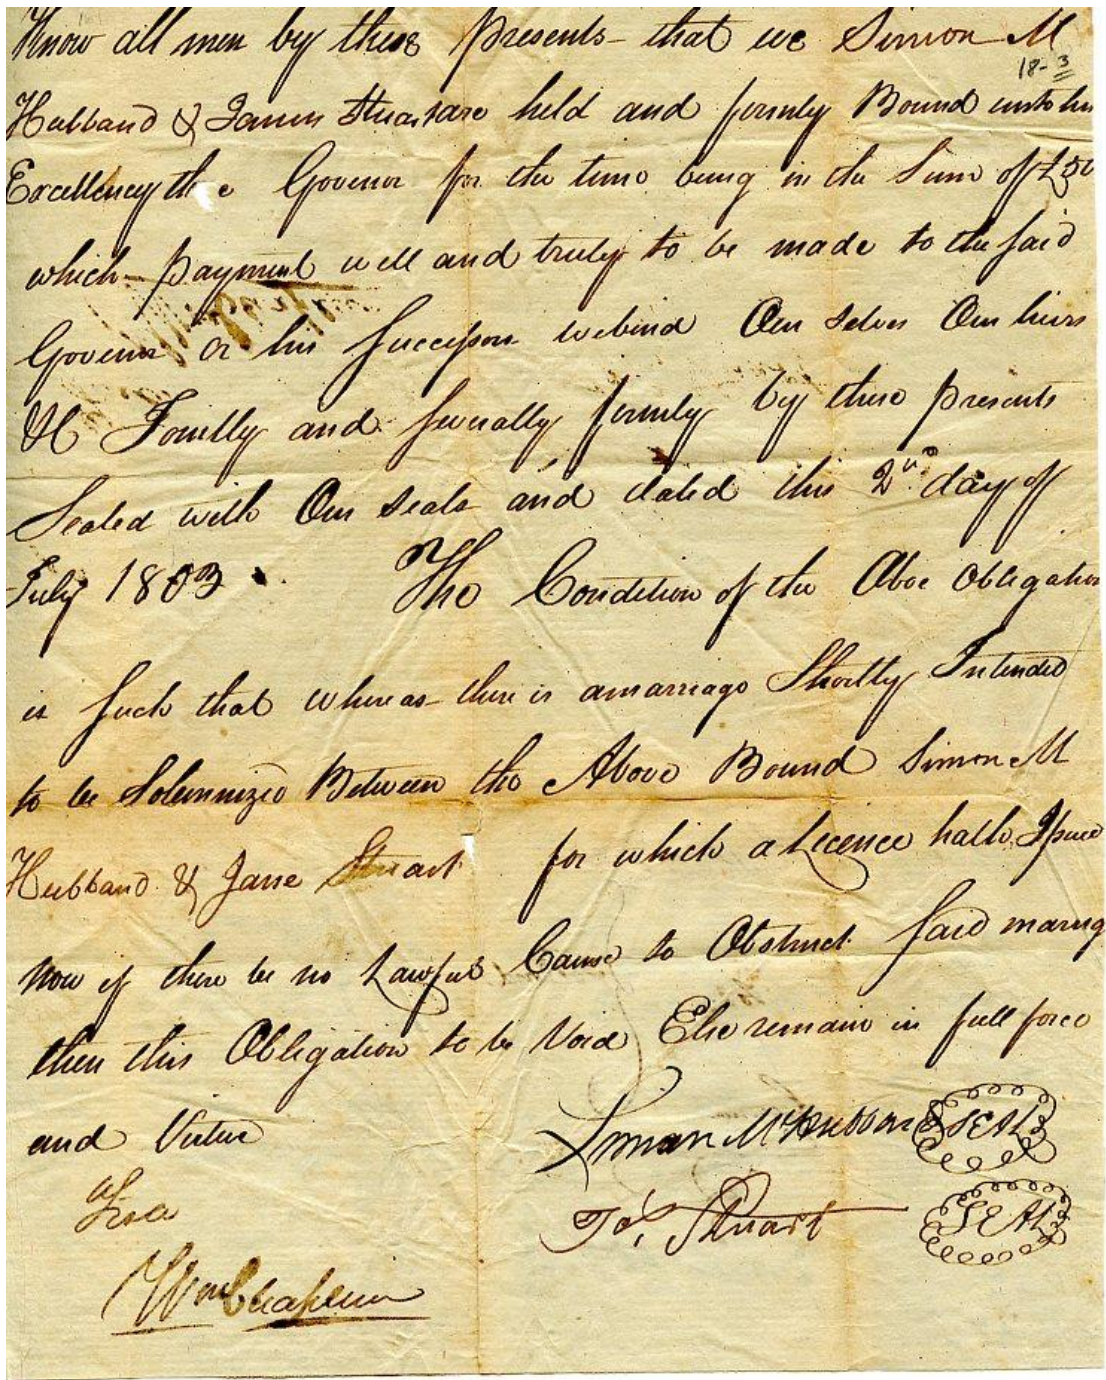 Know all men by these Presents that we Simon M
18-3
Hubband & James Stuart are held and firmly Bound unto his
Excellency the Govenor for the time being in the Sum of £50
which payment well and truly to be made to the said
Govenor or his Successors we bind Our Selves Our heirs
&C Jointly and severally firmly by these presents
Sealed with Our Seals and dated this 2nd day of
July 1803 The Condition of the Aboe Obligation
is such that whereas there is a marriage Shortly Intended
to be Solemnized Between the Above Bound Simon M
Hubband & Jane Stuart for which a Lecence hath Issued
Now if there be no Lawful Cause to Obstruct said marig
then this Obligation to be Void Else remain in full force
and Virtue
Simon M Hubband SEAL
Jas Stuart SEAL
Wm Chaplin